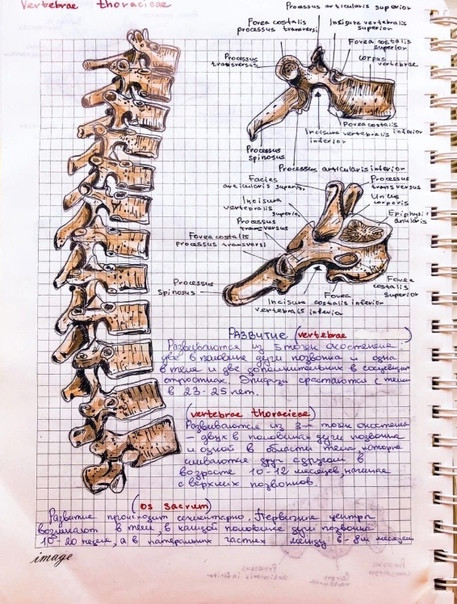 Vertebrae thoracicae
Processus articularis superior
Fovea costalis
processus transversi
Incisura vertebralis
superior
Fovea costalis
superior
Corpus
vertebrae
Processus
transversus
Fovea costalis
inferior
Incisura vertebralis
inferior
Processus
spinosus
Processus articularis inferior
Facies
articularis superior
Processus
transversus
Uncus
corporis
Incisura
vertebralis
superior
Epiphysis
anularis
Processus
transversus
Fovea costalis
processus transversi
Processus
spinosus
Fovea
costalis
superior
Fovea
costalis inferior
Incisura
vertebralis inferior
Развитие (vertebrae)
Развиваются из 5 точек окостенения:
две в половине дуги позвонка и одна
в теле и две дополнительных в
отростках. Эпифизы срастаются с телом
в 23-25 лет.
(vertebrae thoracicae)
Развиваются из 3 точек
- двух в половинах дуги позвонка
и одной в области тела, которые
сливаются друг с другом в
возрасте 10-12 месяцев, начиная
с верхних позвонков
(os sacrum)
Развитие происходит Первичные центры
возникают в теле, в каждой половине дуги позвонка
10-20 недели, а в латеральных частях между 6-8 месяцем
image